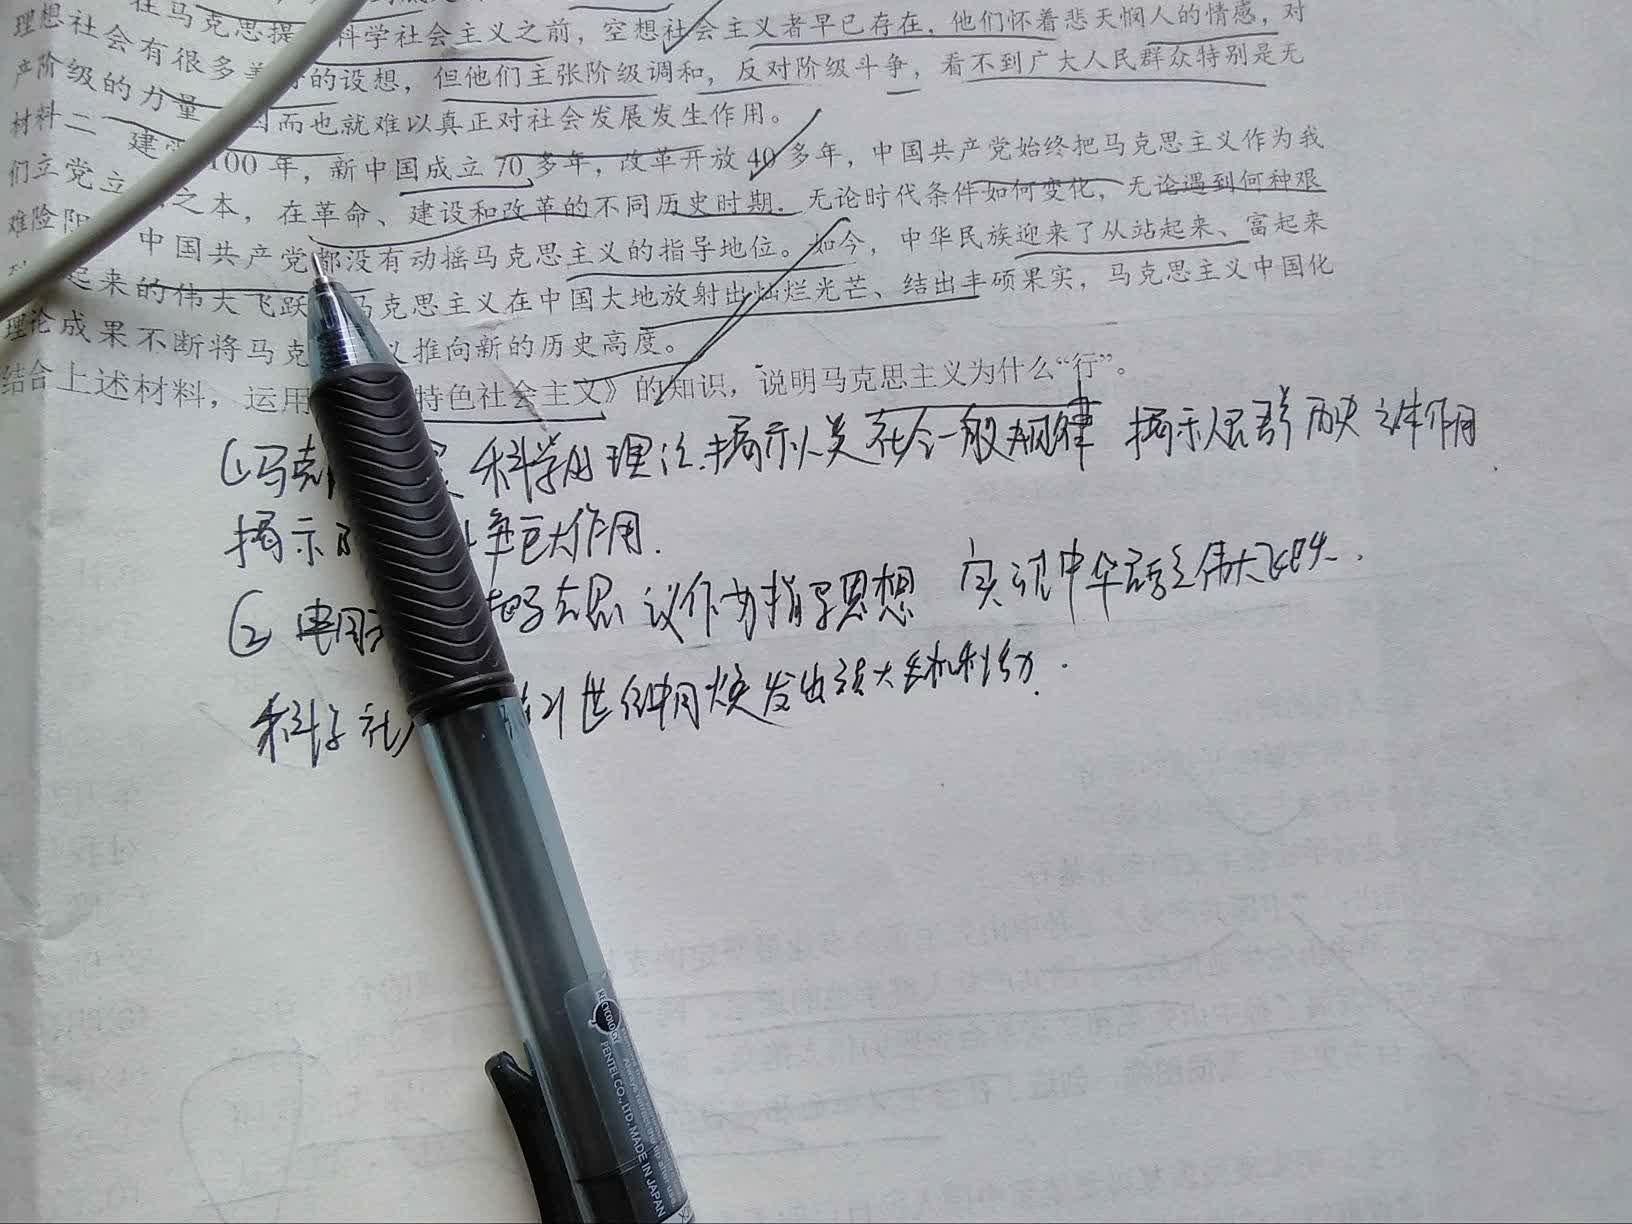 在马克思提 科学社会主义之前，空想社会主义者早已存在，他们怀着悲天悯人的情感，对
理想社会有很多美好的设想，但他们主张阶级调和，反对阶级斗争，看不到广大人民群众特别是无
产阶级的力量 因而也就难以真正对社会发展发生作用。
材料二 建党100年，新中国成立70多年，改革开放40多年，中国共产党始终把马克思主义作为我
们立党立 之本，在革命、建设和改革的不同历史时期，无论时代条件如何变化，无论遇到何种艰
难险阻 中国共产党都没有动摇马克思主义的指导地位。如今，中华民族迎来了从站起来、富起来
起来的伟大飞跃 马克思主义在中国大地放射出灿烂光芒、结出丰硕果实，马克思主义中国化
理论成果不断将马克 义推向新的历史高度。
结合上述材料，运用 特色社会主义》的知识，说明马克思主义为什么“行”。
①马克 科学的理论.揭示人类社会一般规律 揭示人民群 历史主体作用.
揭示 争巨大作用.
② 马克思 议作为指导思想 实现中华民族伟大飞跃.
科学社 21世纪中国焕发出强大生机和活力.
RECYCOLOGY
PENTEL CO., LTD. MADE IN JAPAN